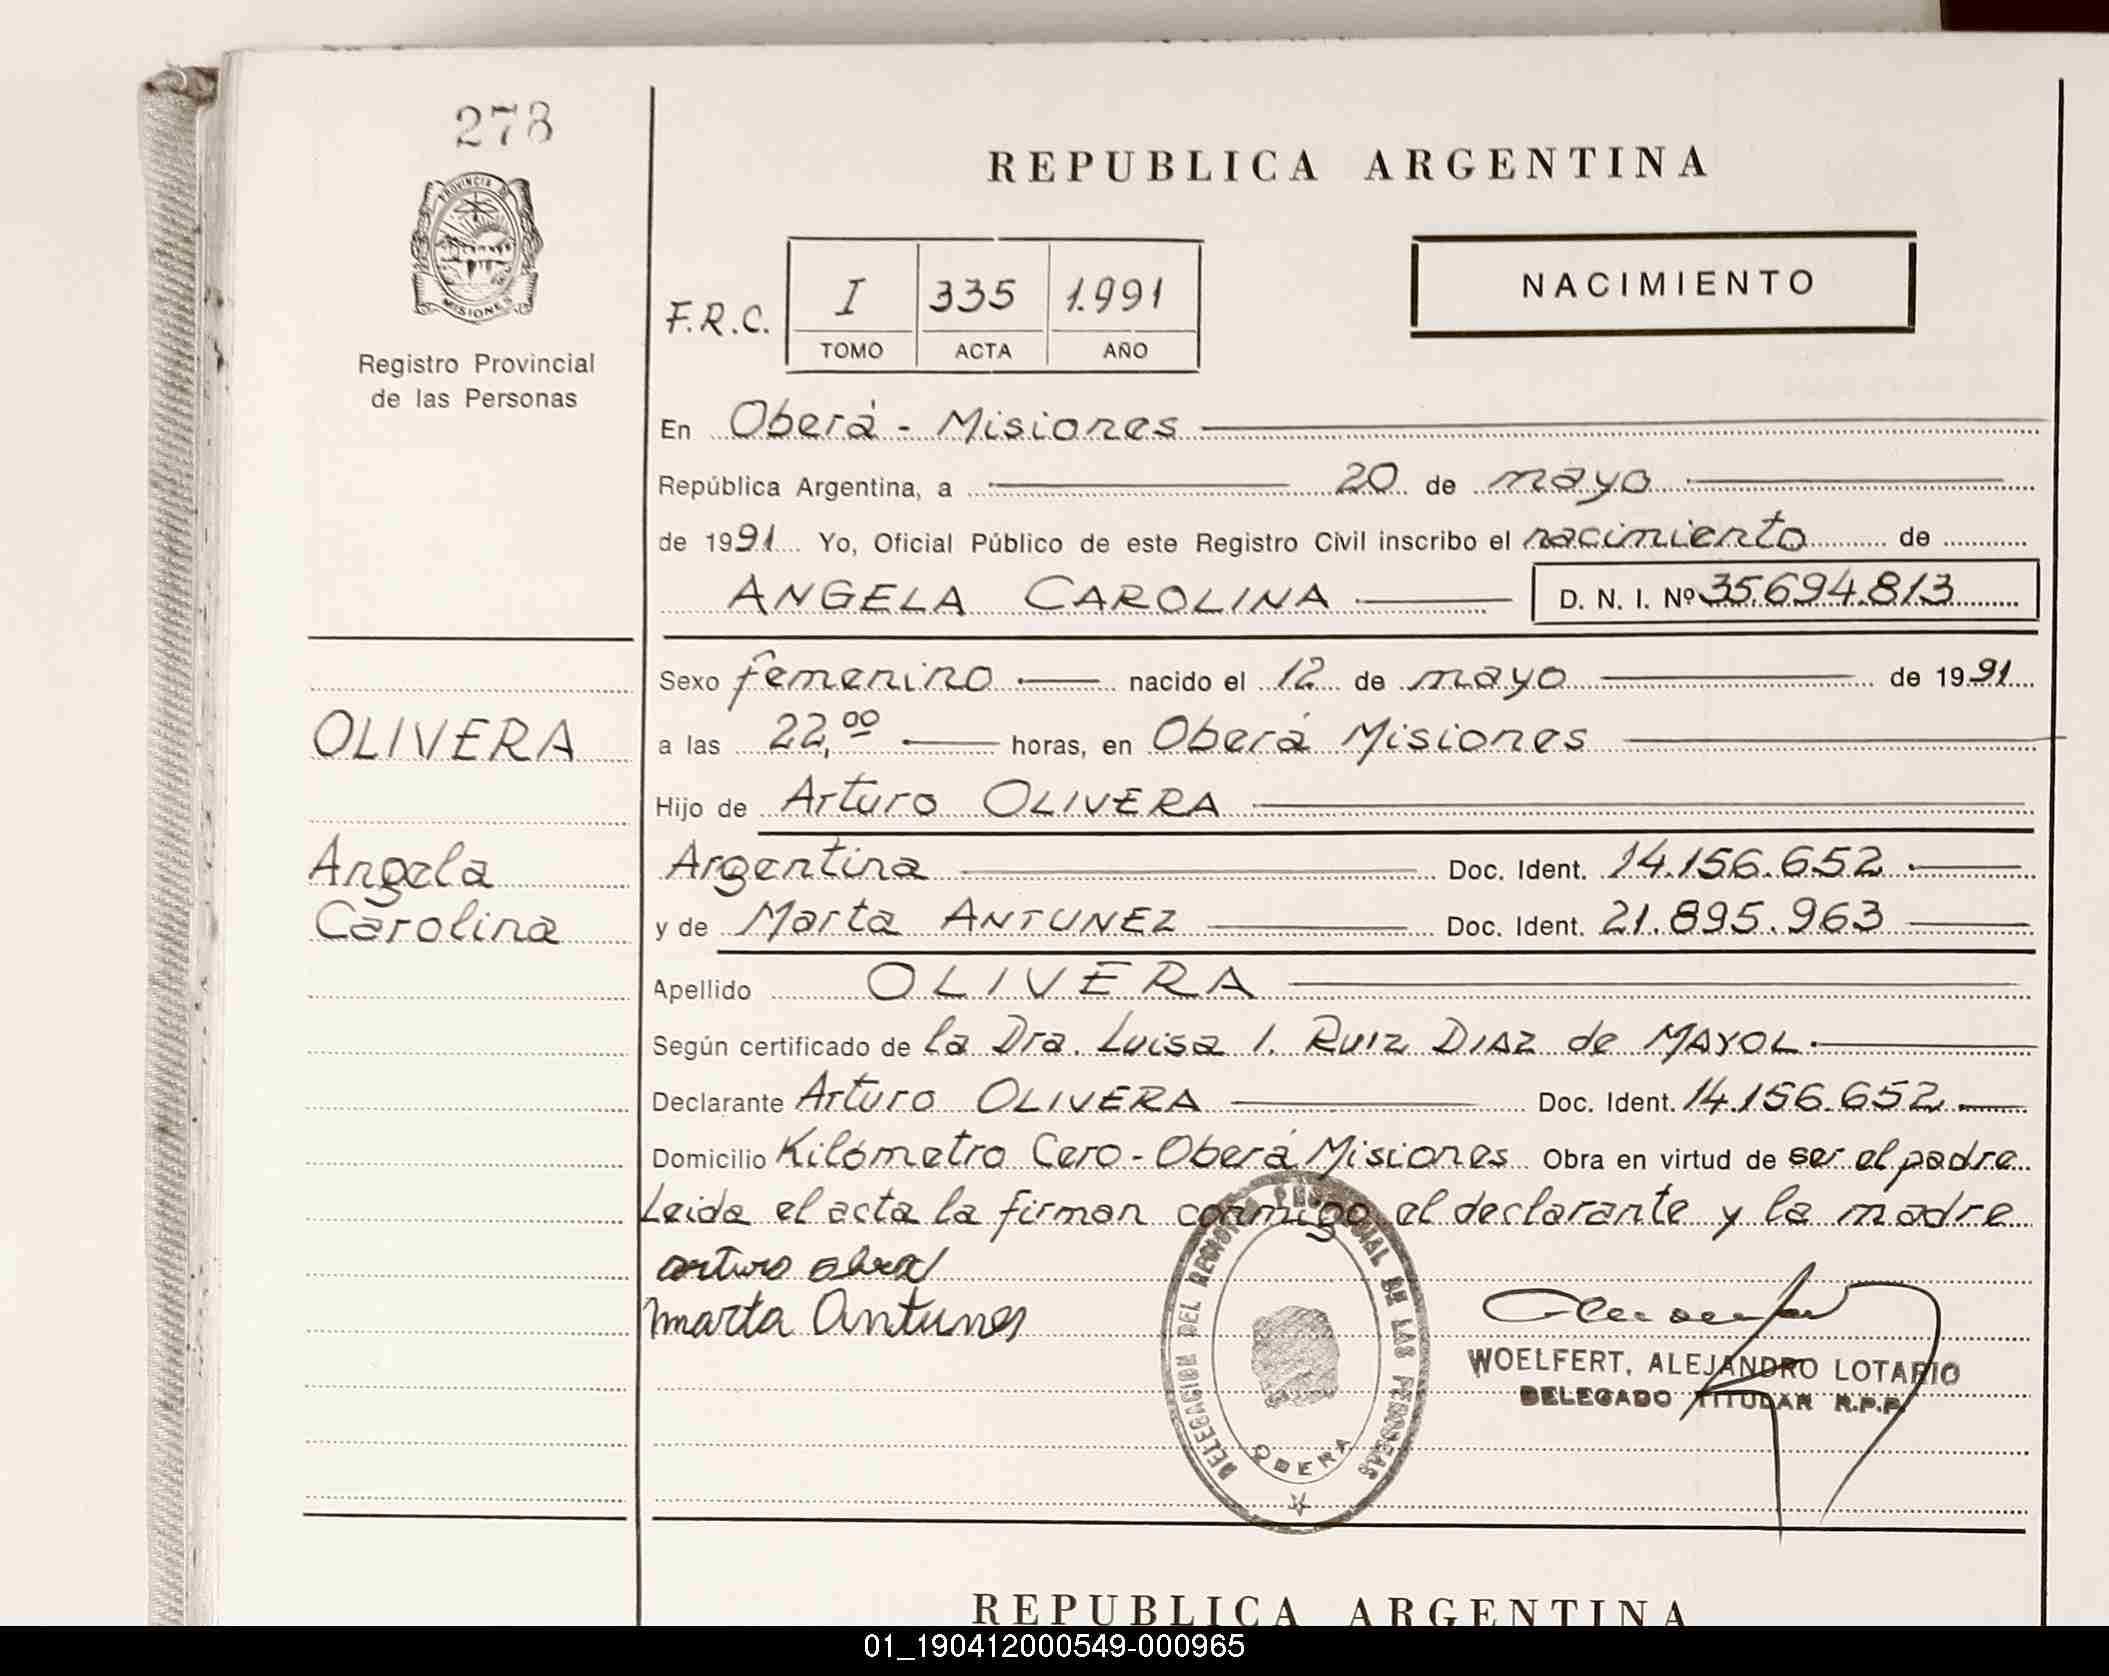 278
PROVINCIA DE
MISIONES
Registro Provincial
de las Personas
REPUBLICA ARGENTINA
NACIMIENTO
F.R.C. I 335 1.991
TOMO ACTA AÑO
En Oberá - Misiones
República Argentina, a 20 de mayo
de 1991 Yo, Oficial Público de este Registro Civil inscribo el nacimiento de
ANGELA CAROLINA D. N. I. Nº 35.694.813
Sexo femenino nacido el 12 de mayo de 1991
OLIVERA
a las 22,00 horas, en Oberá Misiones
Hijo de Arturo OLIVERA
Angela
Carolina
Argentina Doc. Ident. 14.156.652
y de Marta ANTUNEZ Doc. Ident. 21.895.963
Apellido OLIVERA
Según certificado de la Dra. Luisa I. RUIZ DIAZ de MAYOL.
Declarante Arturo OLIVERA Doc. Ident. 14.156.652
Domicilio Kilómetro Cero - Oberá Misiones Obra en virtud de ser el padre
Leida el acta la firman conmigo el declarante y la madre
arturo
marta Antunes
DELEGACION DEL REGISTRO PROVINCIAL DE LAS PERSONAS
OBERA
WOELFERT, ALEJANDRO LOTARIO
DELEGADO TITULAR R.P.P.
REPUBLICA ARGENTINA
01_190412000549-000965